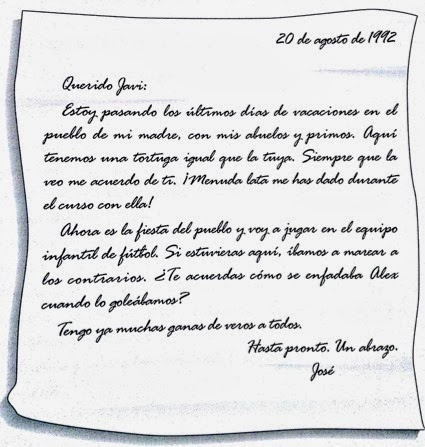 20 de agosto de 1992
Querido Javi:
Estoy pasando los últimos días de vacaciones en el
pueblo de mi madre, con mis abuelos y primos. Aquí
tenemos una tortuga igual que la tuya. Siempre que la
veo me acuerdo de ti. ¡Menuda lata me has dado durante
el curso con ella!
Ahora es la fiesta del pueblo y voy a jugar en el equipo
infantil de fútbol. Si estuvieras aquí, íbamos a marear a
los contrarios. ¿Te acuerdas cómo se enfadaba Alex
cuando lo goleábamos?
Tengo ya muchas ganas de veros a todos.
Hasta pronto. Un abrazo.
José